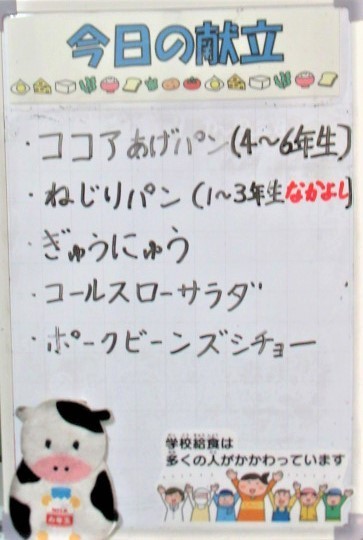 今日の献立
・ココアあげパン(4～6年生)
・ねじりパン(1～3年生なかよし)
・ぎゅうにゅう
・コールスローサラダ
・ポークビーンズシチョー
学校給食は
多くの人がかかわっています